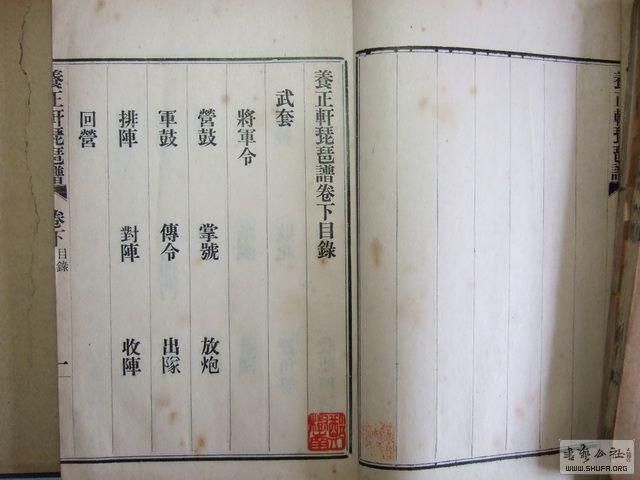 養正軒琵琶譜卷下目錄
武套
將軍令
營鼓 掌號 放炮
軍鼓 傳令 出隊
排陣 對陣 收陣
回營
養正軒琵琶譜 卷下 目錄 一
養正軒琵琶譜
WWW.SHUFA.ORG